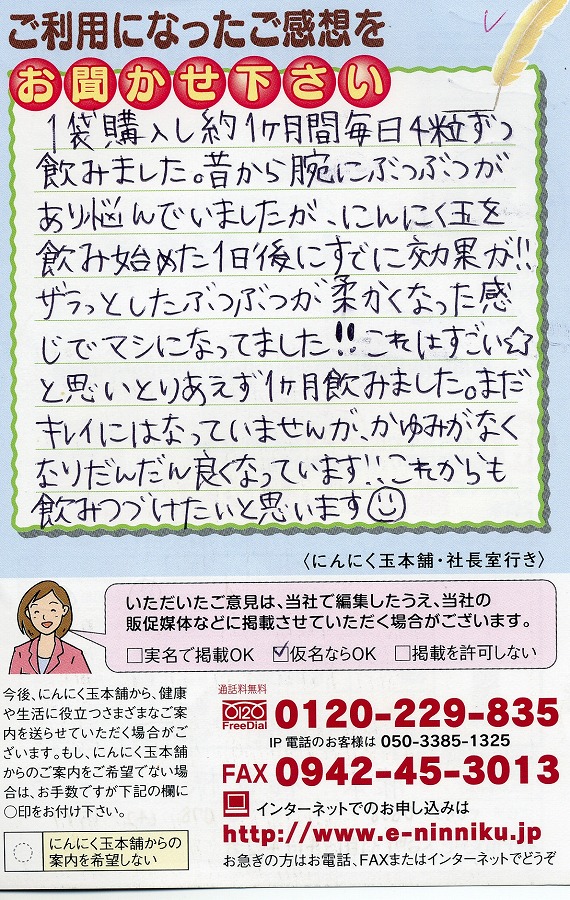 ご利用になったご感想を
お聞かせ下さい
1袋購入し約1ヶ月間毎日4粒ずつ
飲みました。昔から腕にぶつぶつが
あり悩んでいましたが、にんにく玉を
飲み始めた1日後にすでに効果が!!
ザラっとしたぶつぶつが柔かくなった感
じでマシになってました!!これはすごい☆
と思いとりあえず1ヶ月飲みました。まだ
キレイにはなっていませんが、かゆみがなく
なりだんだん良くなっています!!これからも
飲みつづけたいと思います☺
〈にんにく玉本舗・社長室行き〉
いただいたご意見は、当社で編集したうえ、当社の
販促媒体などに掲載させていただく場合がございます。
□実名で掲載OK ☑仮名ならOK □掲載を許可しない
今後、にんにく玉本舗から、健康
や生活に役立つさまざまなご案
内を送らせていただく場合がご
ざいます。もし、にんにく玉本舗
からのご案内をご希望でない場
合は、お手数ですが下記の欄に
〇印をお付け下さい。
にんにく玉本舗からの
案内を希望しない
通話料無料
FreeDial 0120-229-835
IP電話のお客様は 050-3385-1325
FAX 0942-45-3013
インターネットでのお申し込みは
http://www.e-ninniku.jp
お急ぎの方はお電話、FAXまたはインターネットでどうぞ